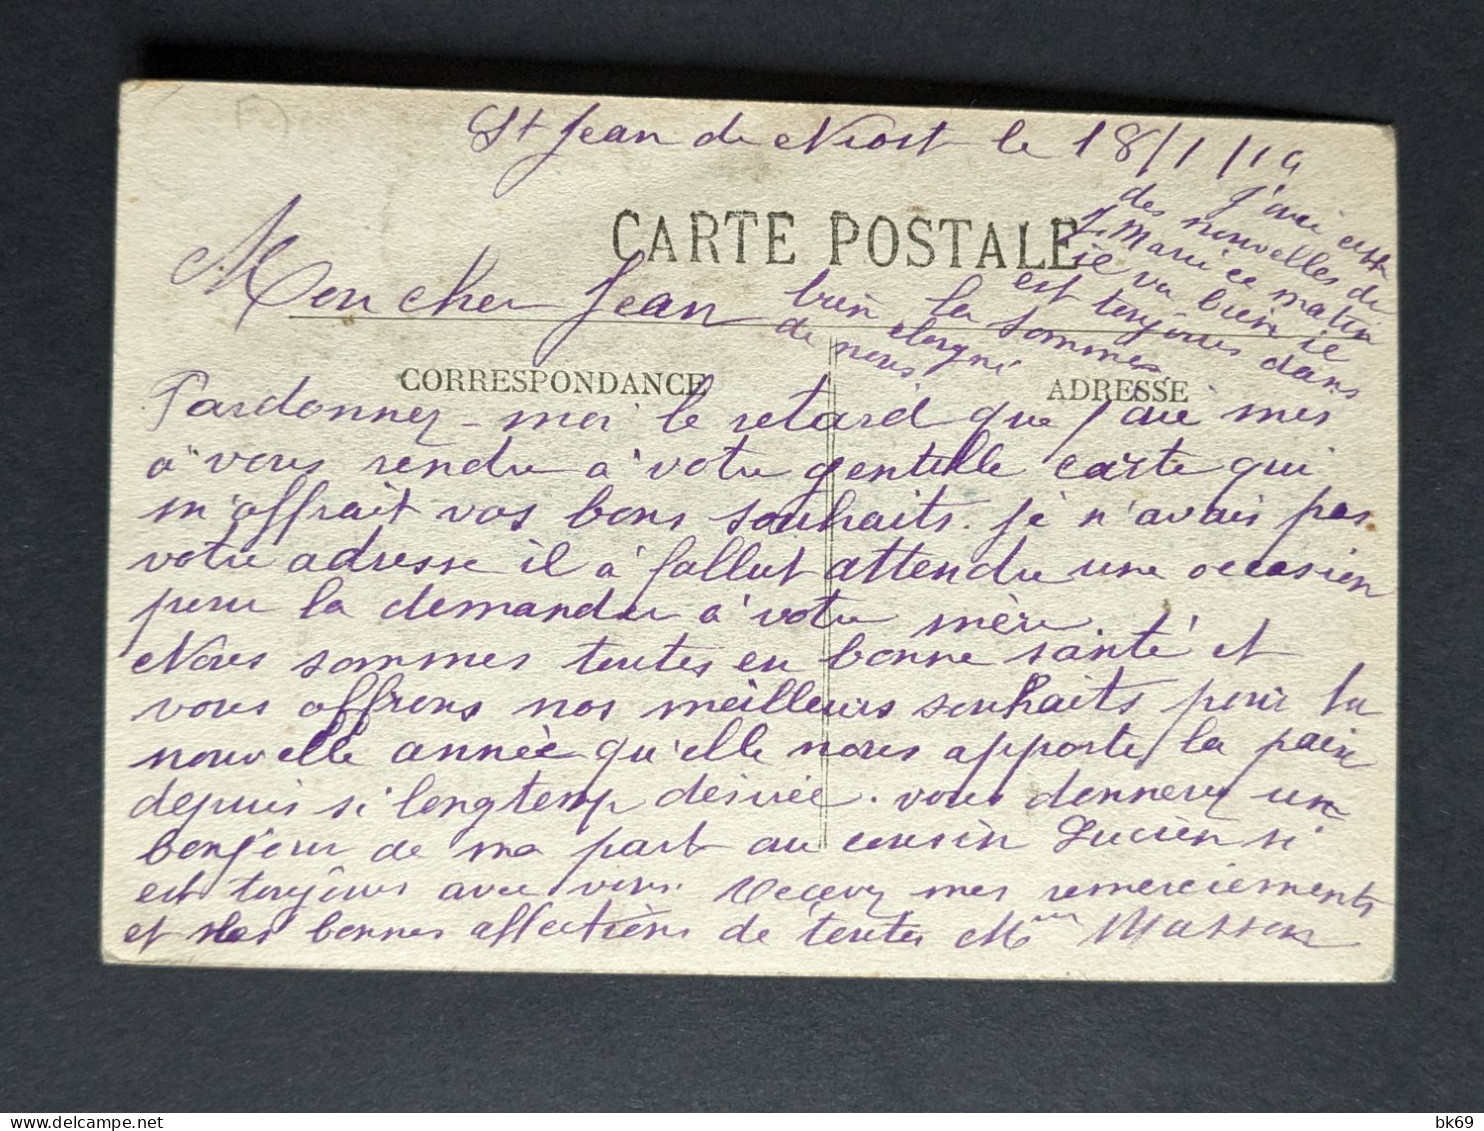 St Jean de Niost le 18/1/19
CARTE POSTALE
j'ai
des nouvelles de
Marius ce matin
il va bien il
est toujours dans
la Sommes
bien eloigné
de nous
Mon cher Jean
CORRESPONDANCE
ADRESSE
Pardonnez-moi le retard que j'ai mis
a vous rendre à votre gentille carte qui
m'offrait vos bons souhaits. je n'avais pas
votre adresse il à fallut attendre une occasion
pour la demander à votre mère.
Nous sommes toutes en bonne santé et
vous offrons nos meilleurs souhaits pour la
nouvelle année qu'elle nous apporte la paix
depuis si longtemp désirée. vous donnerez un
bonjour de ma part au cousin Lucien si
est toujours avec vous. Recevez mes remerciements
et les bonnes affections de toutes Mme Masson
bk69